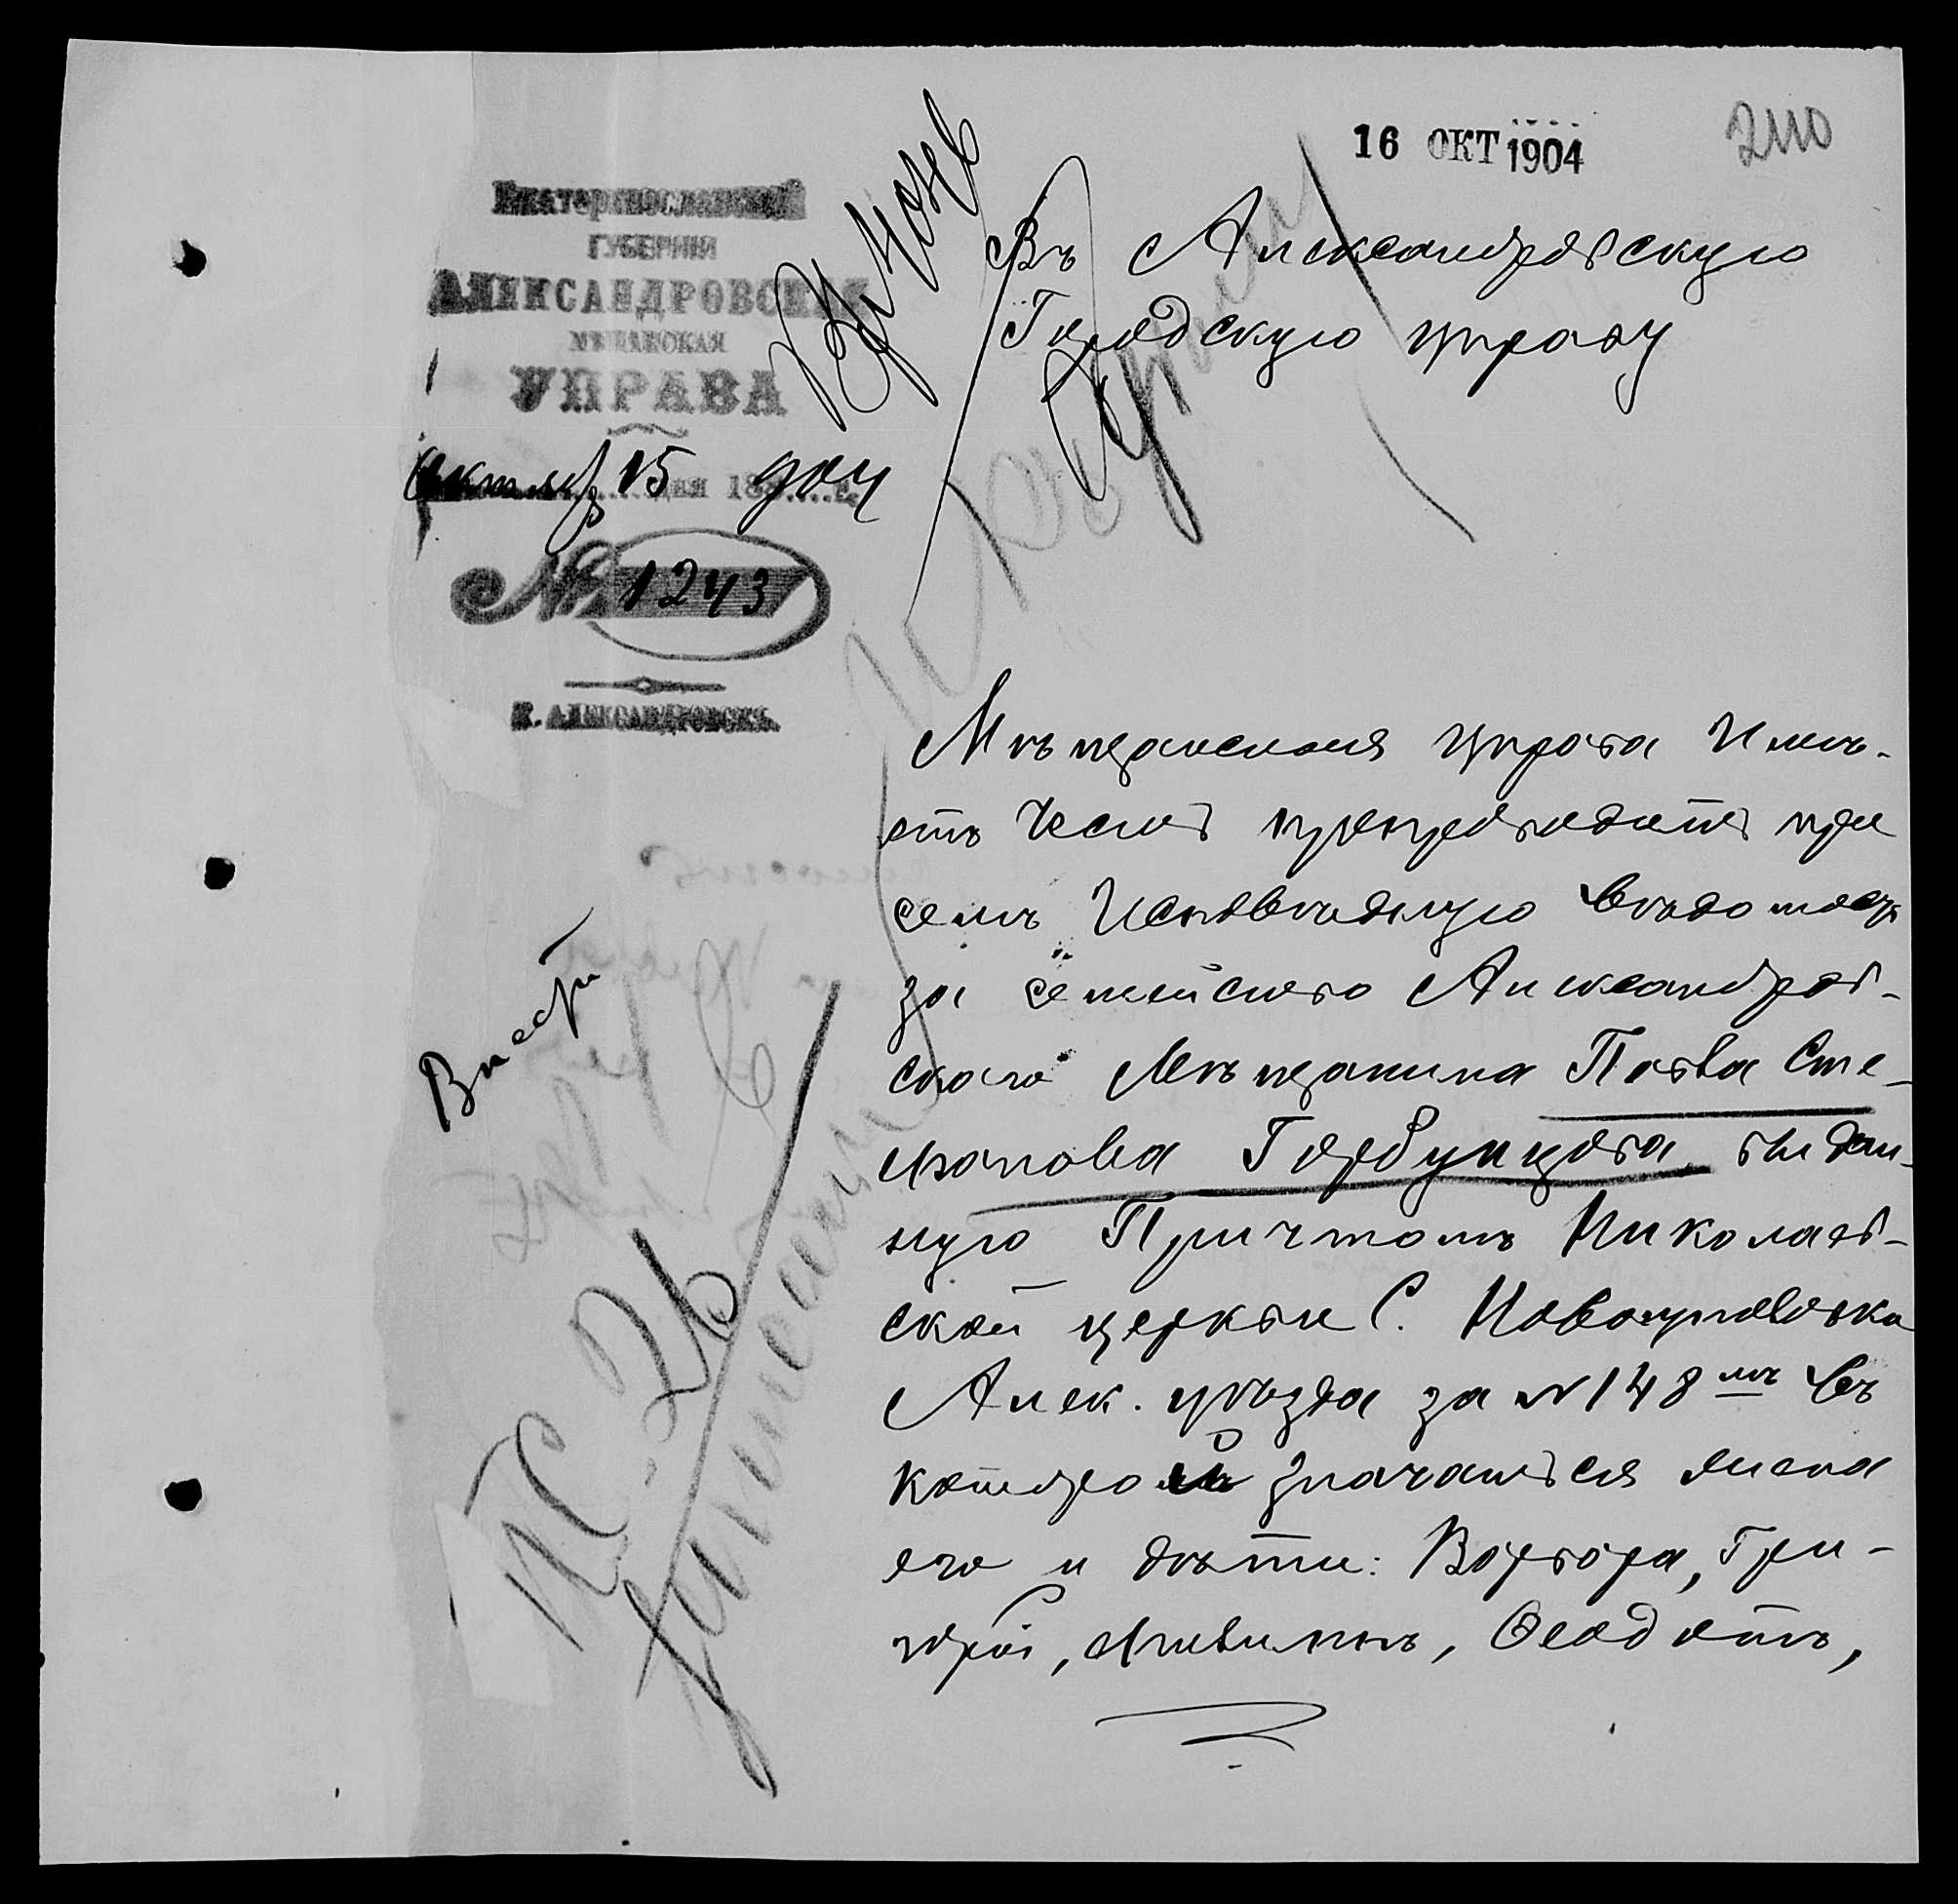 16 ОКТ 1904
210
Екатеринославской
ГУБЕРНІИ
АЛЕКСАНДРОВСКАЯ
МѢЩАНСКАЯ
УПРАВА
октяб 15 дня 18 904 г.
№ 1243
Г. АЛЕКСАНДРОВСКЪ.
Въ Александровскую
Городскую управу
Мѣщанская управа Имѣ-
етъ честь препроводить при
семъ Исповѣдную вѣдомость
за семейство Александров-
скаго Мѣщанина Павла Сте-
панова Горбунцова, выдан-
ную Причтомъ Николаев-
ской церкви С. Новогуповка
Алек. уѣзда за № 148мъ въ
которой значатся жена
его и дѣти: Варвара, Гри-
горій, Феодотъ,
К 26